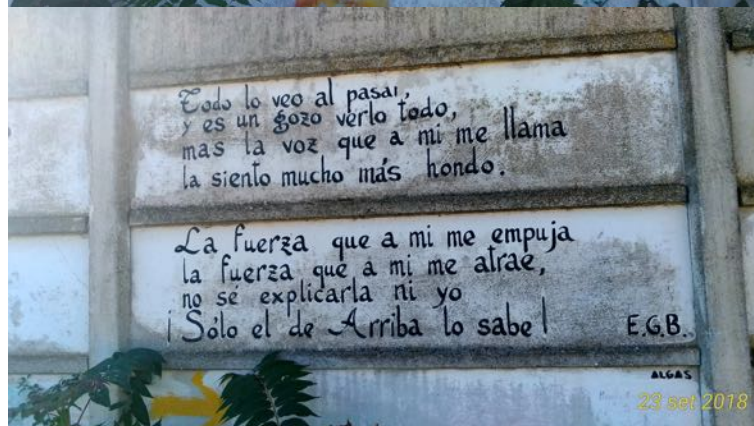 Todo lo veo al pasar,
y es un gozo verlo todo,
mas la voz que a mi me llama
la siento mucho más hondo.
La fuerza que a mi me empuja
la fuerza que a mi me atrae,
no sé explicarla ni yo
¡Sólo el de Arriba lo sabe!
E.G.B.
ALGAS
23 set 2018